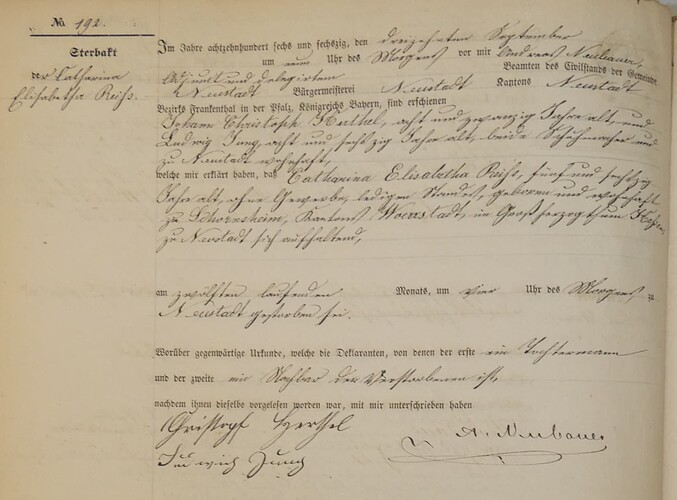 No. 192.
Sterbakt
der Catharina
Elisabetha Reiss.
Im Jahre achtzehnhundert sechs und sechszig, den dreizehnten September
um neun Uhr des Morgens vor mir Andreas Neubauer,
Adjunkt und delegirtem Beamten des Civilstands der Gemeinde
Neustadt Bürgermeisterei Neustadt Kantons Neustadt
Bezirks Frankenthal in der Pfalz, Königreichs Bayern, sind erschienen
Johann Christoph Herthel, acht und zwanzig Jahre alt, und
Ludwig Jung, acht und sechszig Jahre alt, beide Schuhmacher und
zu Neustadt wohnhaft,
welche mir erklärt haben, daß Catharina Elisabetha Reiss, fünf und sechszig
Jahre alt, ohne Gewerbe, ledigen Standes, geboren und wohnhaft
zu Schornsheim, Kantons Woerrstadt, im Großherzogthum Hessen,
zu Neustadt sich aufhaltend,
am zwölften laufenden Monats, um vier Uhr des Morgens zu
Neustadt gestorben sei.
Worüber gegenwärtige Urkunde, welche die Deklaranten, von denen der erste ein Tochtermann
und der zweite ein Nachbar der Verstorbenen ist,
nachdem ihnen dieselbe vorgelesen worden war, mit mir unterschrieben haben
Christopf Herthel
A. Neubauer
Ludwich Jung